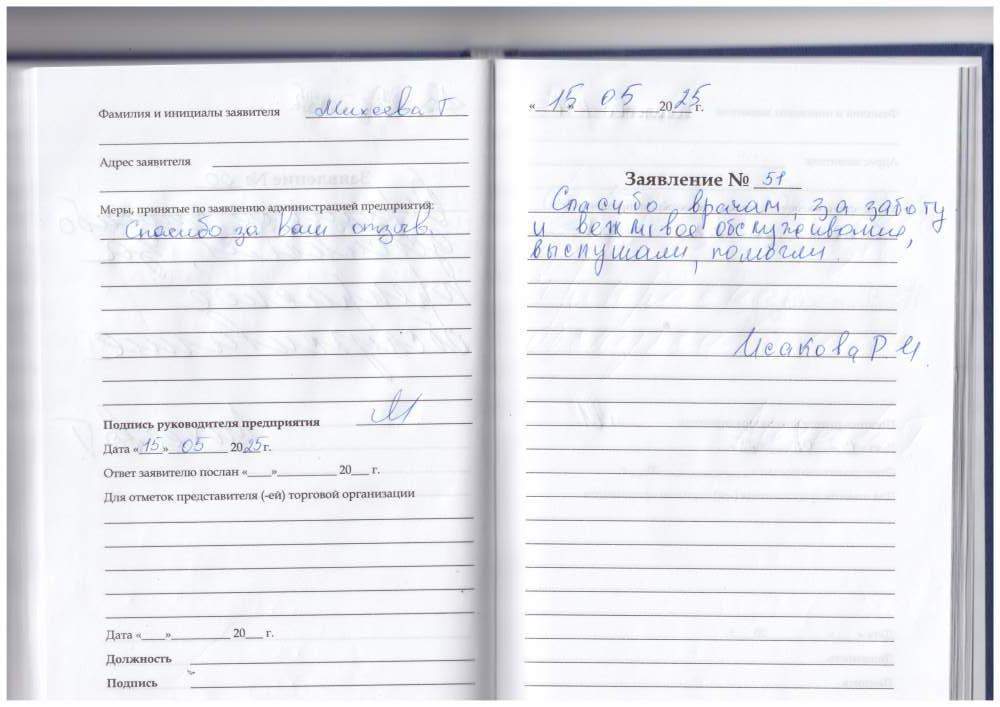 Фамилия и инициалы заявителя Михеева Т
Адрес заявителя
Меры, принятые по заявлению администрацией предприятия:
Спасибо за Ваш отзыв.
Подпись руководителя предприятия
Дата «15» 05 2025г.
Ответ заявителю послан «____»__________ 20___ г.
Для отметок представителя (-ей) торговой организации
Дата «____»__________ 20___ г.
Должность
Подпись
«15» 05 2025г.
Заявление № 51
Спасибо врачам, за заботу
и вежливое обслуживание,
выслушали, помогли.
Исакова Р И